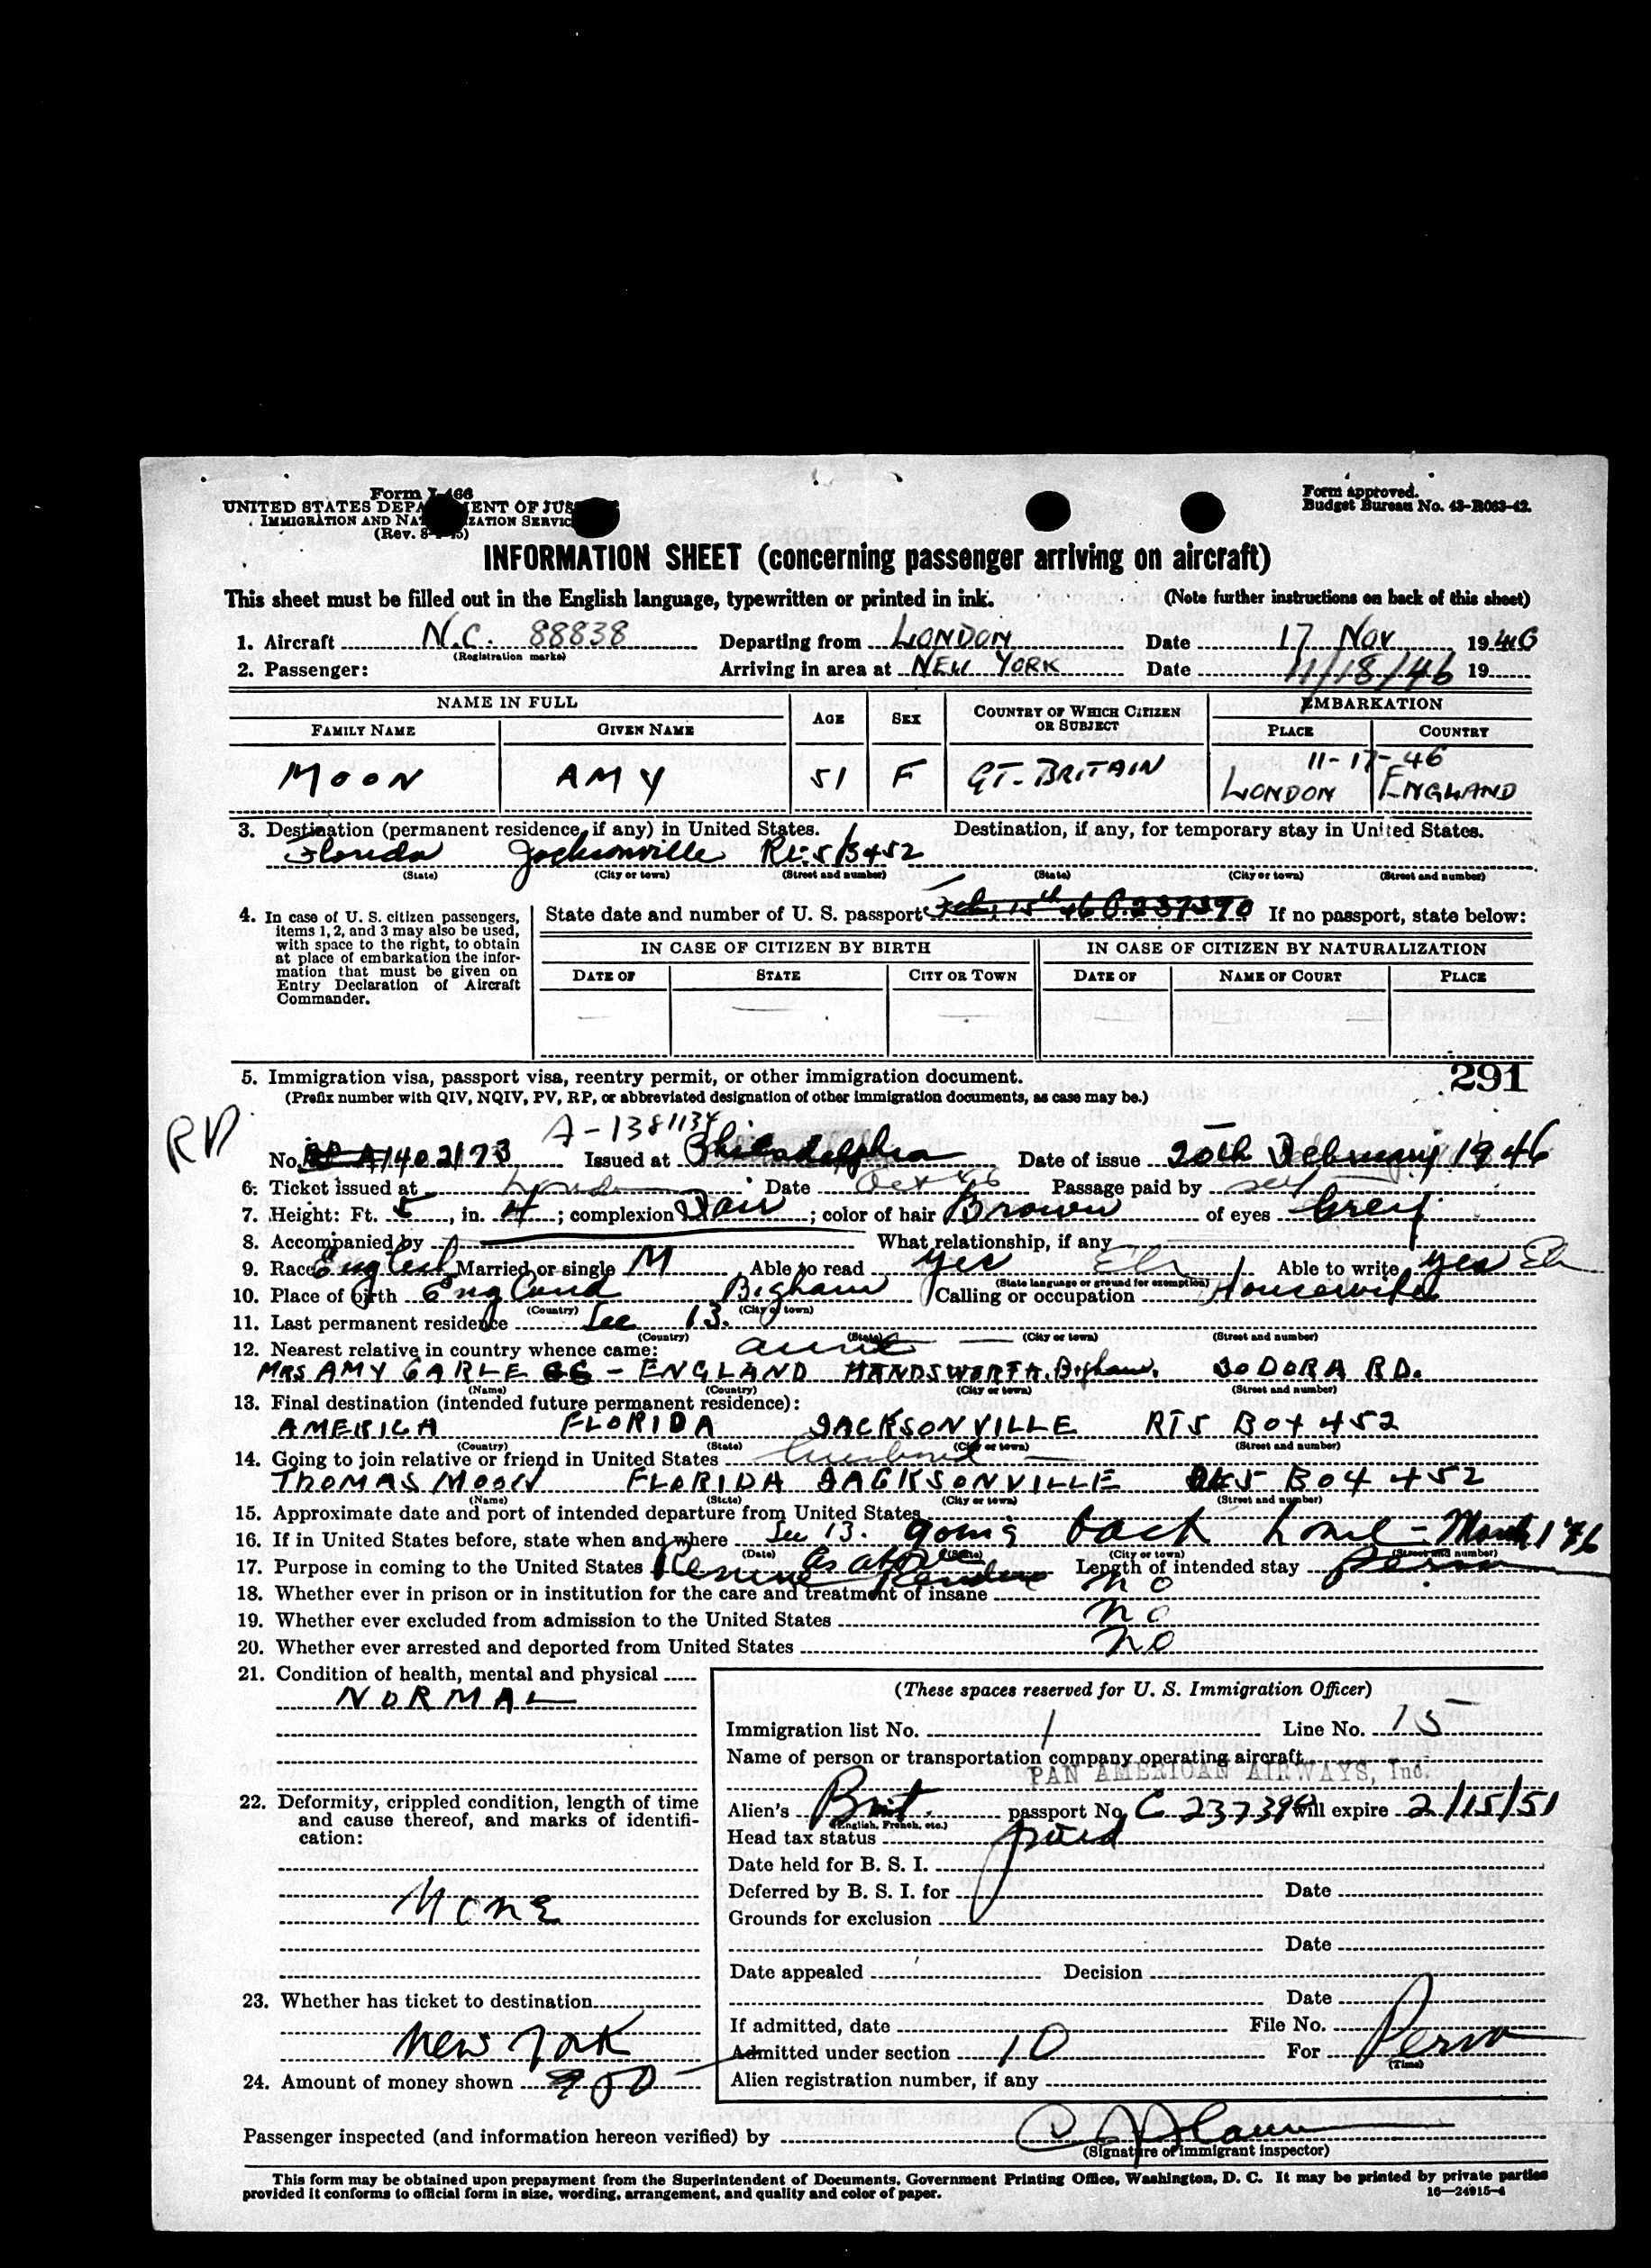 Form I-466
UNITED STATES DEPA ENT OF JUS
IMMIGRATION AND NA IZATION SERVIC
(Rev. 8- -45)
Form approved.
Budget Bureau No. 43-R063-42.
INFORMATION SHEET (concerning passenger arriving on aircraft)
This sheet must be filled out in the English language, typewritten or printed in ink. (Note further instructions on back of this sheet)
1. Aircraft N.C. 88838 Departing from LONDON Date 17 Nov 1946
(Registration marks)
2. Passenger: Arriving in area at NEW YORK Date 11/18/46 19
NAME IN FULL AGE SEX COUNTRY OF WHICH CITIZEN OR SUBJECT EMBARKATION
FAMILY NAME GIVEN NAME PLACE COUNTRY
11-17-46
MOON AMY 51 F GT. BRITAIN LONDON ENGLAND
3. Destination (permanent residence, if any) in United States. Destination, if any, for temporary stay in United States.
Florida Jacksonville Rt. 5 B452
(State) (City or town) (Street and number) (State) (City or town) (Street and number)
4. In case of U. S. citizen passengers, items 1, 2, and 3 may also be used, with space to the right, to obtain at place of embarkation the information that must be given on Entry Declaration of Aircraft Commander.
State date and number of U. S. passport Feb. 15th 46 C.237390 If no passport, state below:
IN CASE OF CITIZEN BY BIRTH IN CASE OF CITIZEN BY NATURALIZATION
DATE OF STATE CITY OR TOWN DATE OF NAME OF COURT PLACE
5. Immigration visa, passport visa, reentry permit, or other immigration document. 291
(Prefix number with QIV, NQIV, PV, RP, or abbreviated designation of other immigration documents, as case may be.)
RP A-1381134
No. RP A1402173 Issued at Philadelphia Date of issue 20th February 1946
6. Ticket issued at London Date Oct 46 Passage paid by self
7. Height: Ft. 5, in. 4; complexion Fair; color of hair Brown of eyes Grey
8. Accompanied by What relationship, if any
9. Race English Married or single M Able to read yes Able to write yes
(State language or ground for exemption)
10. Place of birth England Bigham Calling or occupation Housewife
(Country) (City or town)
11. Last permanent residence See 13.
(Country) (State) (City or town) (Street and number)
12. Nearest relative in country whence came: aunt
MRS AMY CARLE - ENGLAND HANDSWORTH. Bigham. 30 DORA RD.
(Name) (Country) (City or town) (Street and number)
13. Final destination (intended future permanent residence):
AMERICA FLORIDA JACKSONVILLE RT5 BOX 452
(Country) (State) (City or town) (Street and number)
14. Going to join relative or friend in United States husband
THOMAS MOON FLORIDA JACKSONVILLE RT5 BOX 452
(Name) (State) (City or town) (Street and number)
15. Approximate date and port of intended departure from United States
16. If in United States before, state when and where See 13. going back home - March 1946
(Date) (State) (City or town) (Street and number)
17. Purpose in coming to the United States as above Resume Residence Length of intended stay perm
18. Whether ever in prison or in institution for the care and treatment of insane no
19. Whether ever excluded from admission to the United States no
20. Whether ever arrested and deported from United States no
21. Condition of health, mental and physical
NORMAL
22. Deformity, crippled condition, length of time and cause thereof, and marks of identification:
None
23. Whether has ticket to destination
New York
24. Amount of money shown
(These spaces reserved for U. S. Immigration Officer)
Immigration list No. 1 Line No. 15
Name of person or transportation company operating aircraft
PAN AMERICAN AIRWAYS, Inc.
Alien's Brit. passport No. C 237390 Will expire 2/15/51
(English, French, etc.)
Head tax status paid
Date held for B. S. I.
Deferred by B. S. I. for Date
Grounds for exclusion
Date
Date appealed Decision
Date
If admitted, date File No.
Admitted under section 10 For Perm
(Time)
Alien registration number, if any
Passenger inspected (and information hereon verified) by
(Signature of immigrant inspector)
This form may be obtained upon prepayment from the Superintendent of Documents, Government Printing Office, Washington, D. C. It may be printed by private parties
provided it conforms to official form in size, wording, arrangement, and quality and color of paper. 16—24915-4